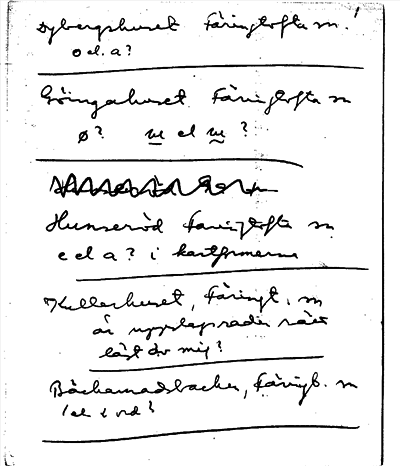 Dybergshuset Färingtofta sn. 1
o el. a?
Göingahuset Färingtofta sn
ø? el ?
Hunseröd Färingtofta sn
e el a? i kartformerna
Kullarhuset, Färingt. sn
är uppslagsraden rätt
läst av mig?
Bäckamadsbacken, Färingt. sn
1 el 2 ord?